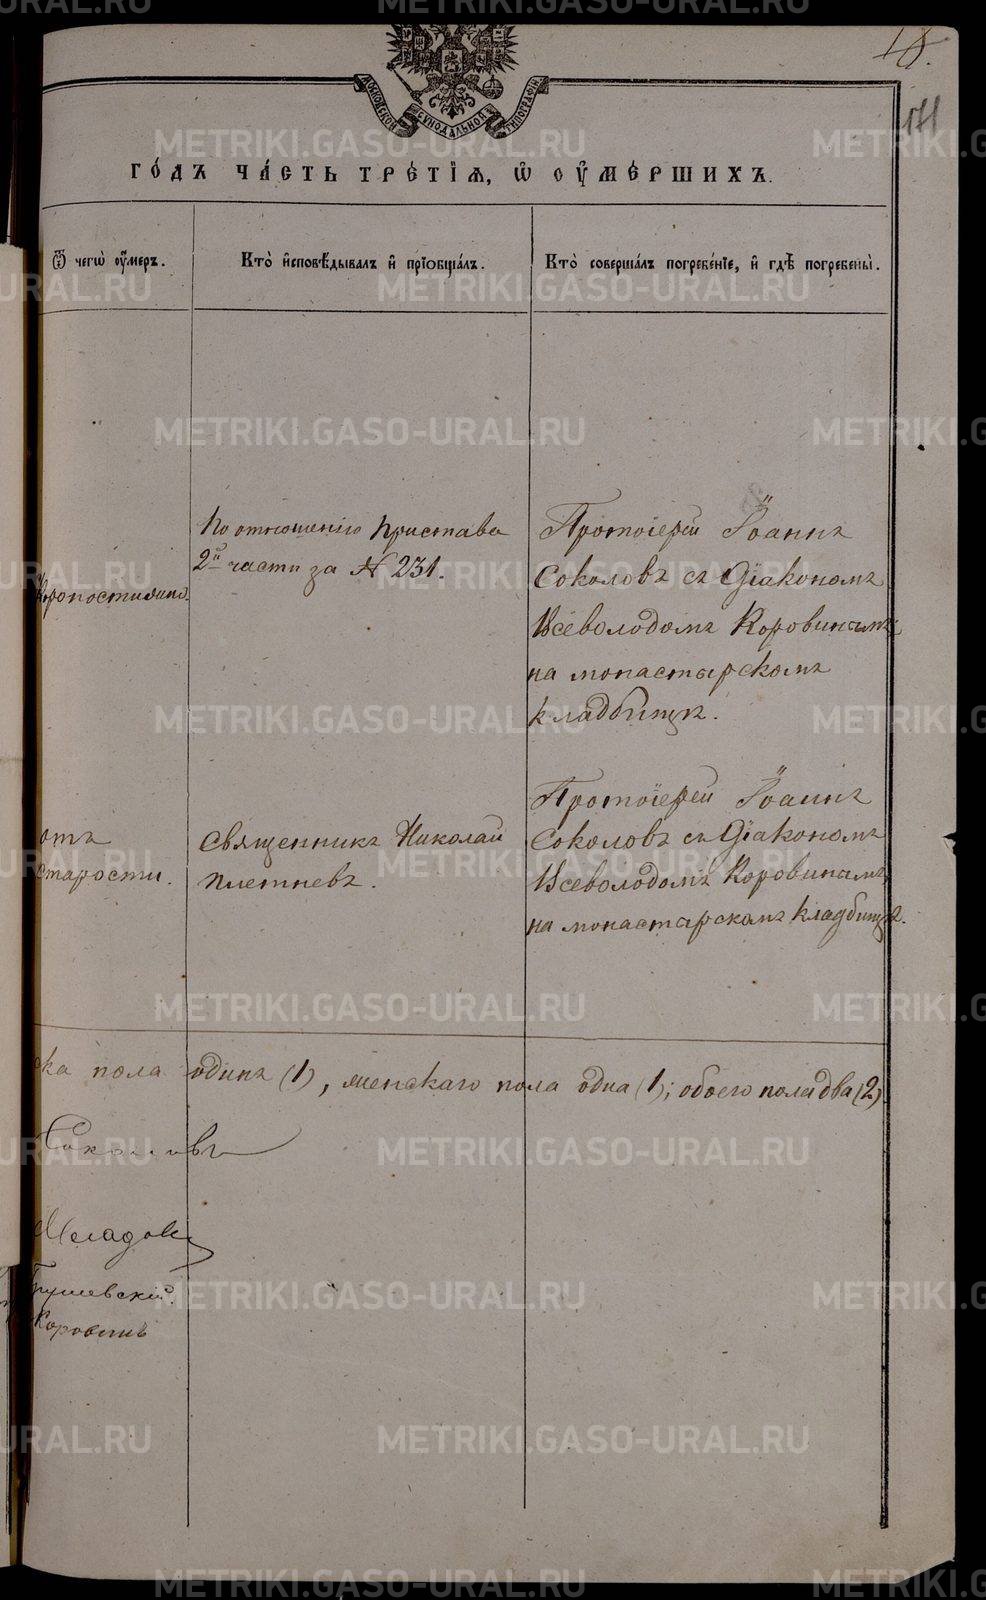 18.
171
МОСКОВСКОЙ СѴНОДАЛЬНОЙ ТИПОГРАФІИ
ГО́ДЪ ЧА́СТЬ ТРЕ́ТІѦ, Ѡ҆ ОУ҆МЕ́РШИХЪ.
Ѿ чегѡ̀ оу҆́меръ.
Кто̀ и҆сповѣ́дывалъ и҆ прїѡбща́лъ.
Кто̀ соверша́лъ погребе́нїе, и҆ гдѣ̀ погребены̀.
По отношенію Пристава
2й части за № 231.
Протоіерей Іоаннъ
Соколовъ съ Діакономъ
Всеволодомъ Коровинымъ
на монастырскомъ
кладбищѣ.
отъ
старости.
Священникъ Николай
Плетневъ.
Протоіерей Іоаннъ
Соколовъ съ Діакономъ
Всеволодомъ Коровинымъ
на монастырскомъ кладбищѣ.
ска пола одинъ (1), женскаго пола одна (1); обоего пола два (2)
Соколовъ
Грушевскій.
Коровинъ
METRIKI.GASO-URAL.RU